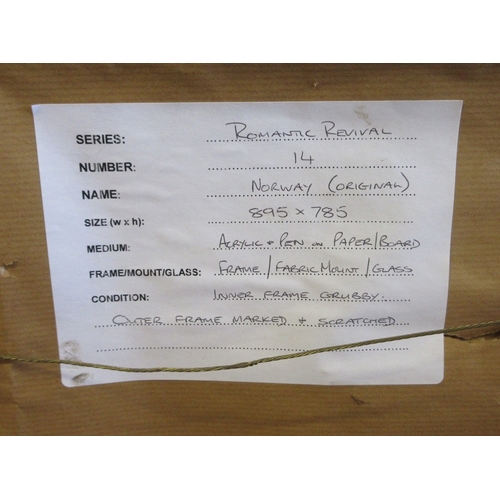 SERIES: ROMANTIC REVIVAL
NUMBER: 14
NAME: NORWAY (ORIGINAL)
SIZE (w x h): 895 x 785
MEDIUM: ACRYLIC + PEN ON PAPER/BOARD
FRAME/MOUNT/GLASS: FRAME/FABRIC MOUNT/GLASS
CONDITION: INNER FRAME GRUBBY.
OUTER FRAME MARKED + SCRATCHED